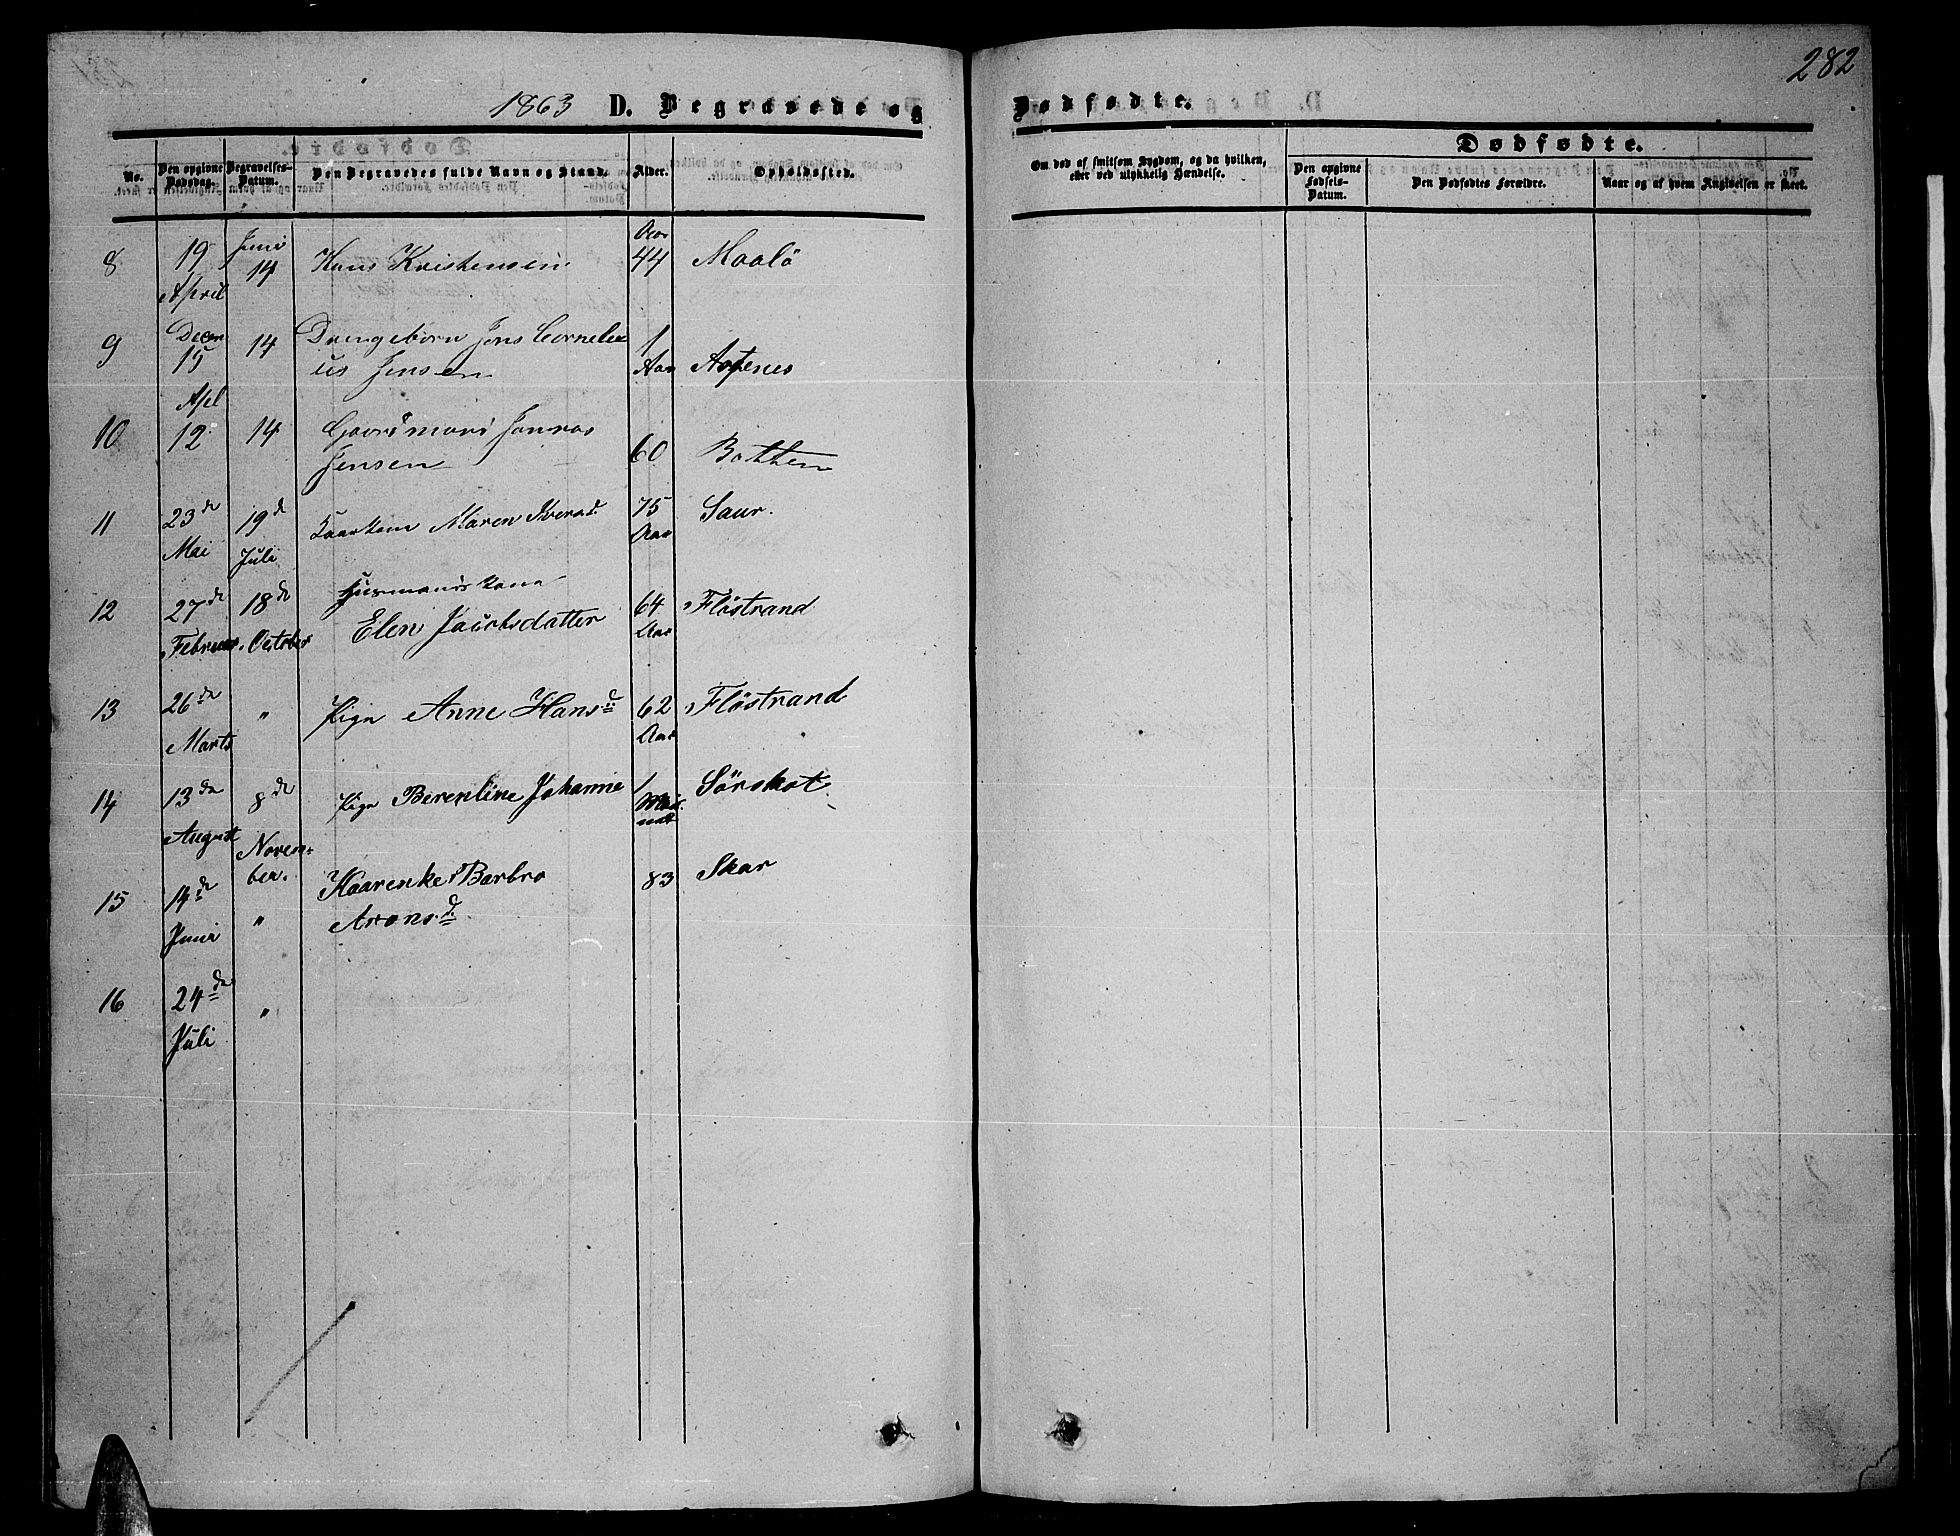 282
1863 D. Begravede og Dødfødte.
No. Den opgivne Dødsdag. Begravelses-Datum. Den Begravedes fulde Navn og Stand. Alder. Opholdssted.
Om død af smitsom Sygdom, og da hvilken, eller ved ulykkelig Hændelse.
Dødfødte.
Den opgivne Fødsels-Datum. Den Dødfødtes Forældre. Naar og af hvem Angivelsen er skeet.
8 19 April Juni 14 Hans Kristensen Aar 44 Maalö
9 Decem 15 14 Drengebörn Jens Corneli
us Jensen 1 Aar
10 Apl 12 14 Gaardmand
Jensen 60 Botten
11 23de Mai 19de Juli Maren 75 Aar Saur.
12 27de Februar 18de October Husmandskone
Elen Jacobsdatter 64 Aar Flöstrand
13 26de Marts " Pige Anne Hansd. 62 Aar Flöstrand
14 13de August 8de November. Pige Berentine Johanne 1 Maaned Sörskot
15 14de Juni " Kaarenke Barbro
Aronsd. 83 Skar
16 24de Juli "